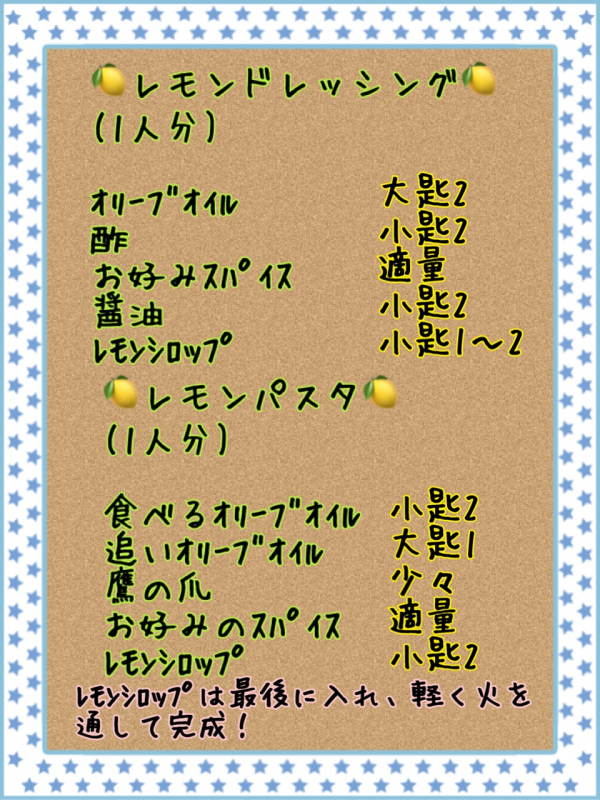 🍋レモンドレッシング🍋
(1人分)
ｵﾘｰﾌﾞｵｲﾙ 大匙2
酢 小匙2
お好みｽﾊﾟｲｽ 適量
醤油 小匙2
ﾚﾓﾝｼﾛｯﾌﾟ 小匙1〜2
🍋レモンパスタ🍋
(1人分)
食べるｵﾘｰﾌﾞｵｲﾙ 小匙2
追いｵﾘｰﾌﾞｵｲﾙ 大匙1
鷹の爪 少々
お好みのｽﾊﾟｲｽ 適量
ﾚﾓﾝｼﾛｯﾌﾟ 小匙2
ﾚﾓﾝｼﾛｯﾌﾟは最後に入れ、軽く火を
通して完成！